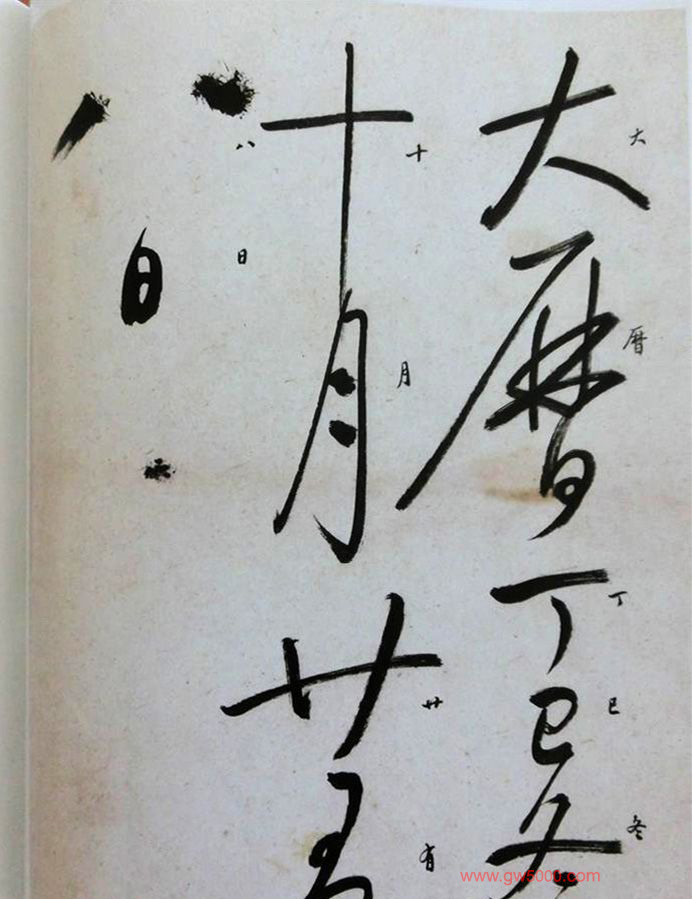 大曆丁巳冬
十月廿有
八日
大
曆
丁
巳
冬
十
月
廿
有
八
日
www.gw8000.com